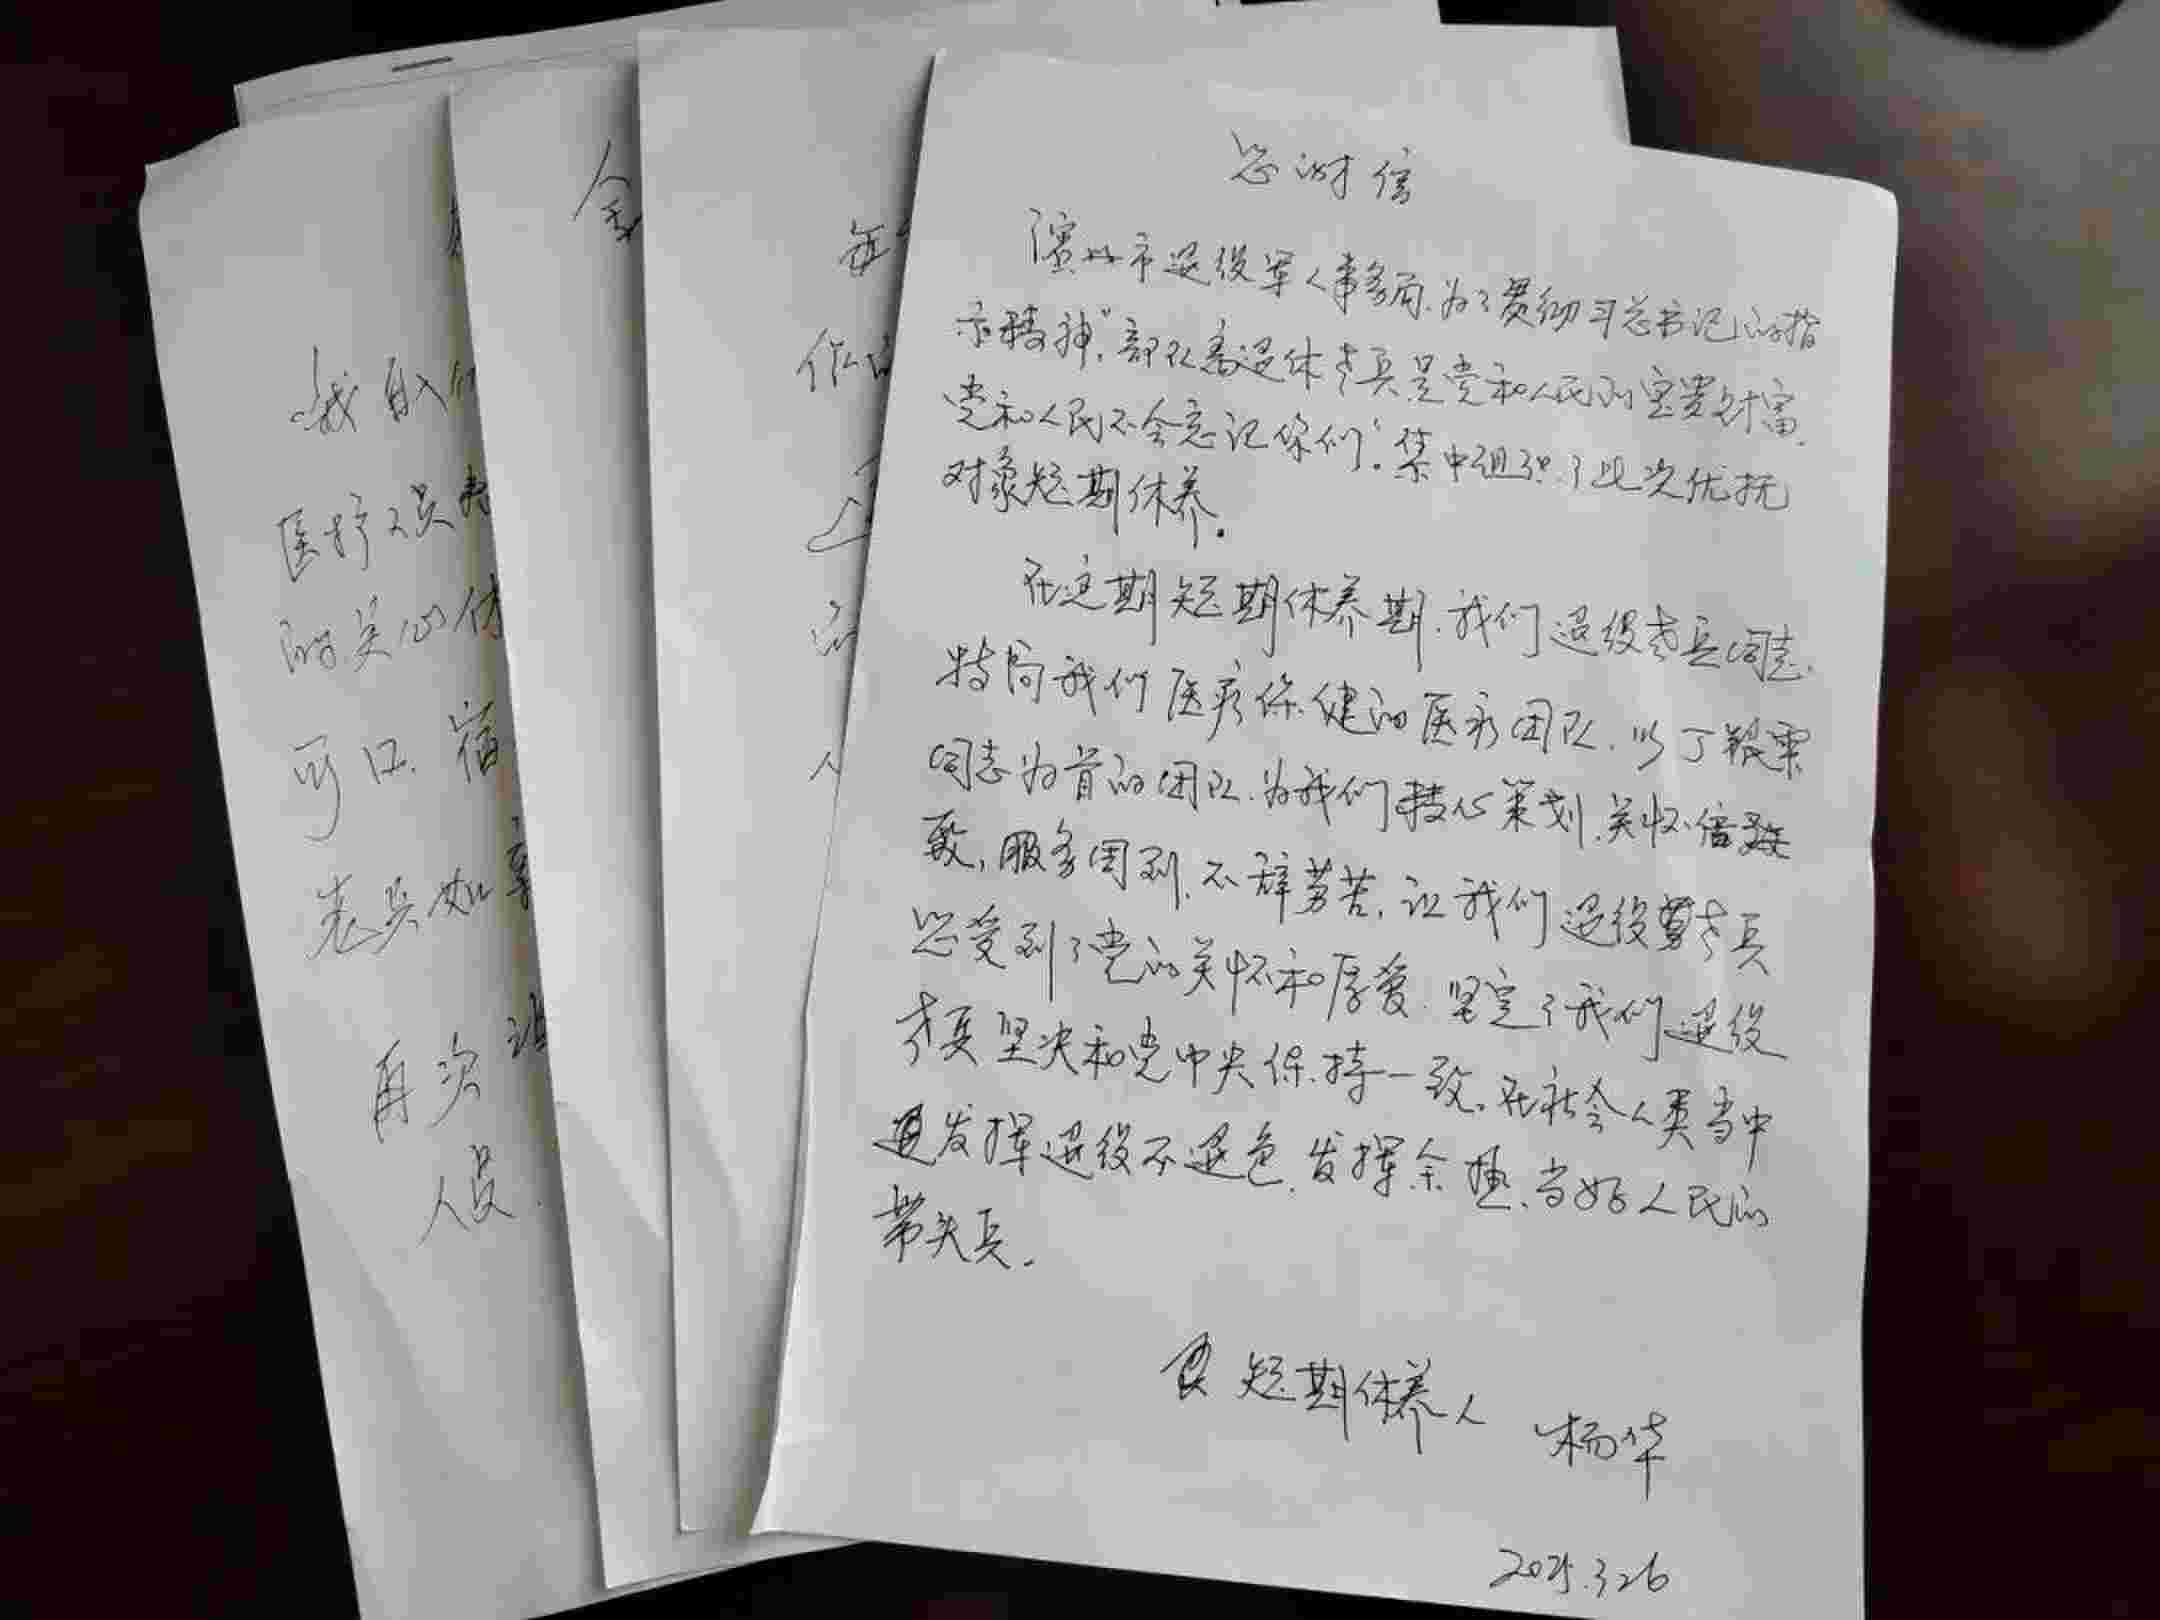 感谢信
滨州市退役军人事务局，为了贯彻习总书记的指
示精神，"部队离退休老兵是党和人民的宝贵财富，
党和人民不会忘记你们"。集中组织了此次优抚
对象短期休养。
在这期短期休养期，我们退役老兵同志，
特向我们医疗保健的医疗团队，以丁银栗
同志为首的团队，为我们精心策划，关怀倍
致，服务周到，不辞劳苦，让我们退役老兵
感受到了党的关怀和厚爱，坚定了我们退役
老兵坚决和党中央保持一致。在社会人类当中
发挥退役不退色，发挥余热，当好人民的
带头兵。
短期休养人
杨华
2025.3.26
我自入
医疗人员
的关心
可口，宿
老兵如
再次
人员
金
每
作
人